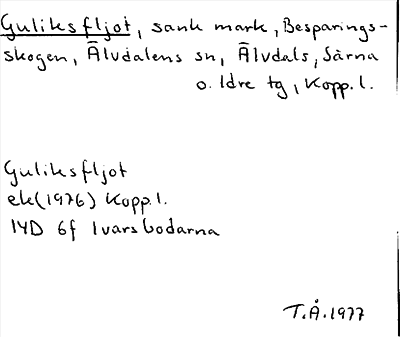 Guliksfljot, sank mark, Besparings-
skogen, Älvdalens sn, Älvdals, Särna
o. Idre tg, Kopp. l.
Guliksfljot
ek(1976) Kopp. l.
14D 6f Ivarsbodarna
T.Å. 1977